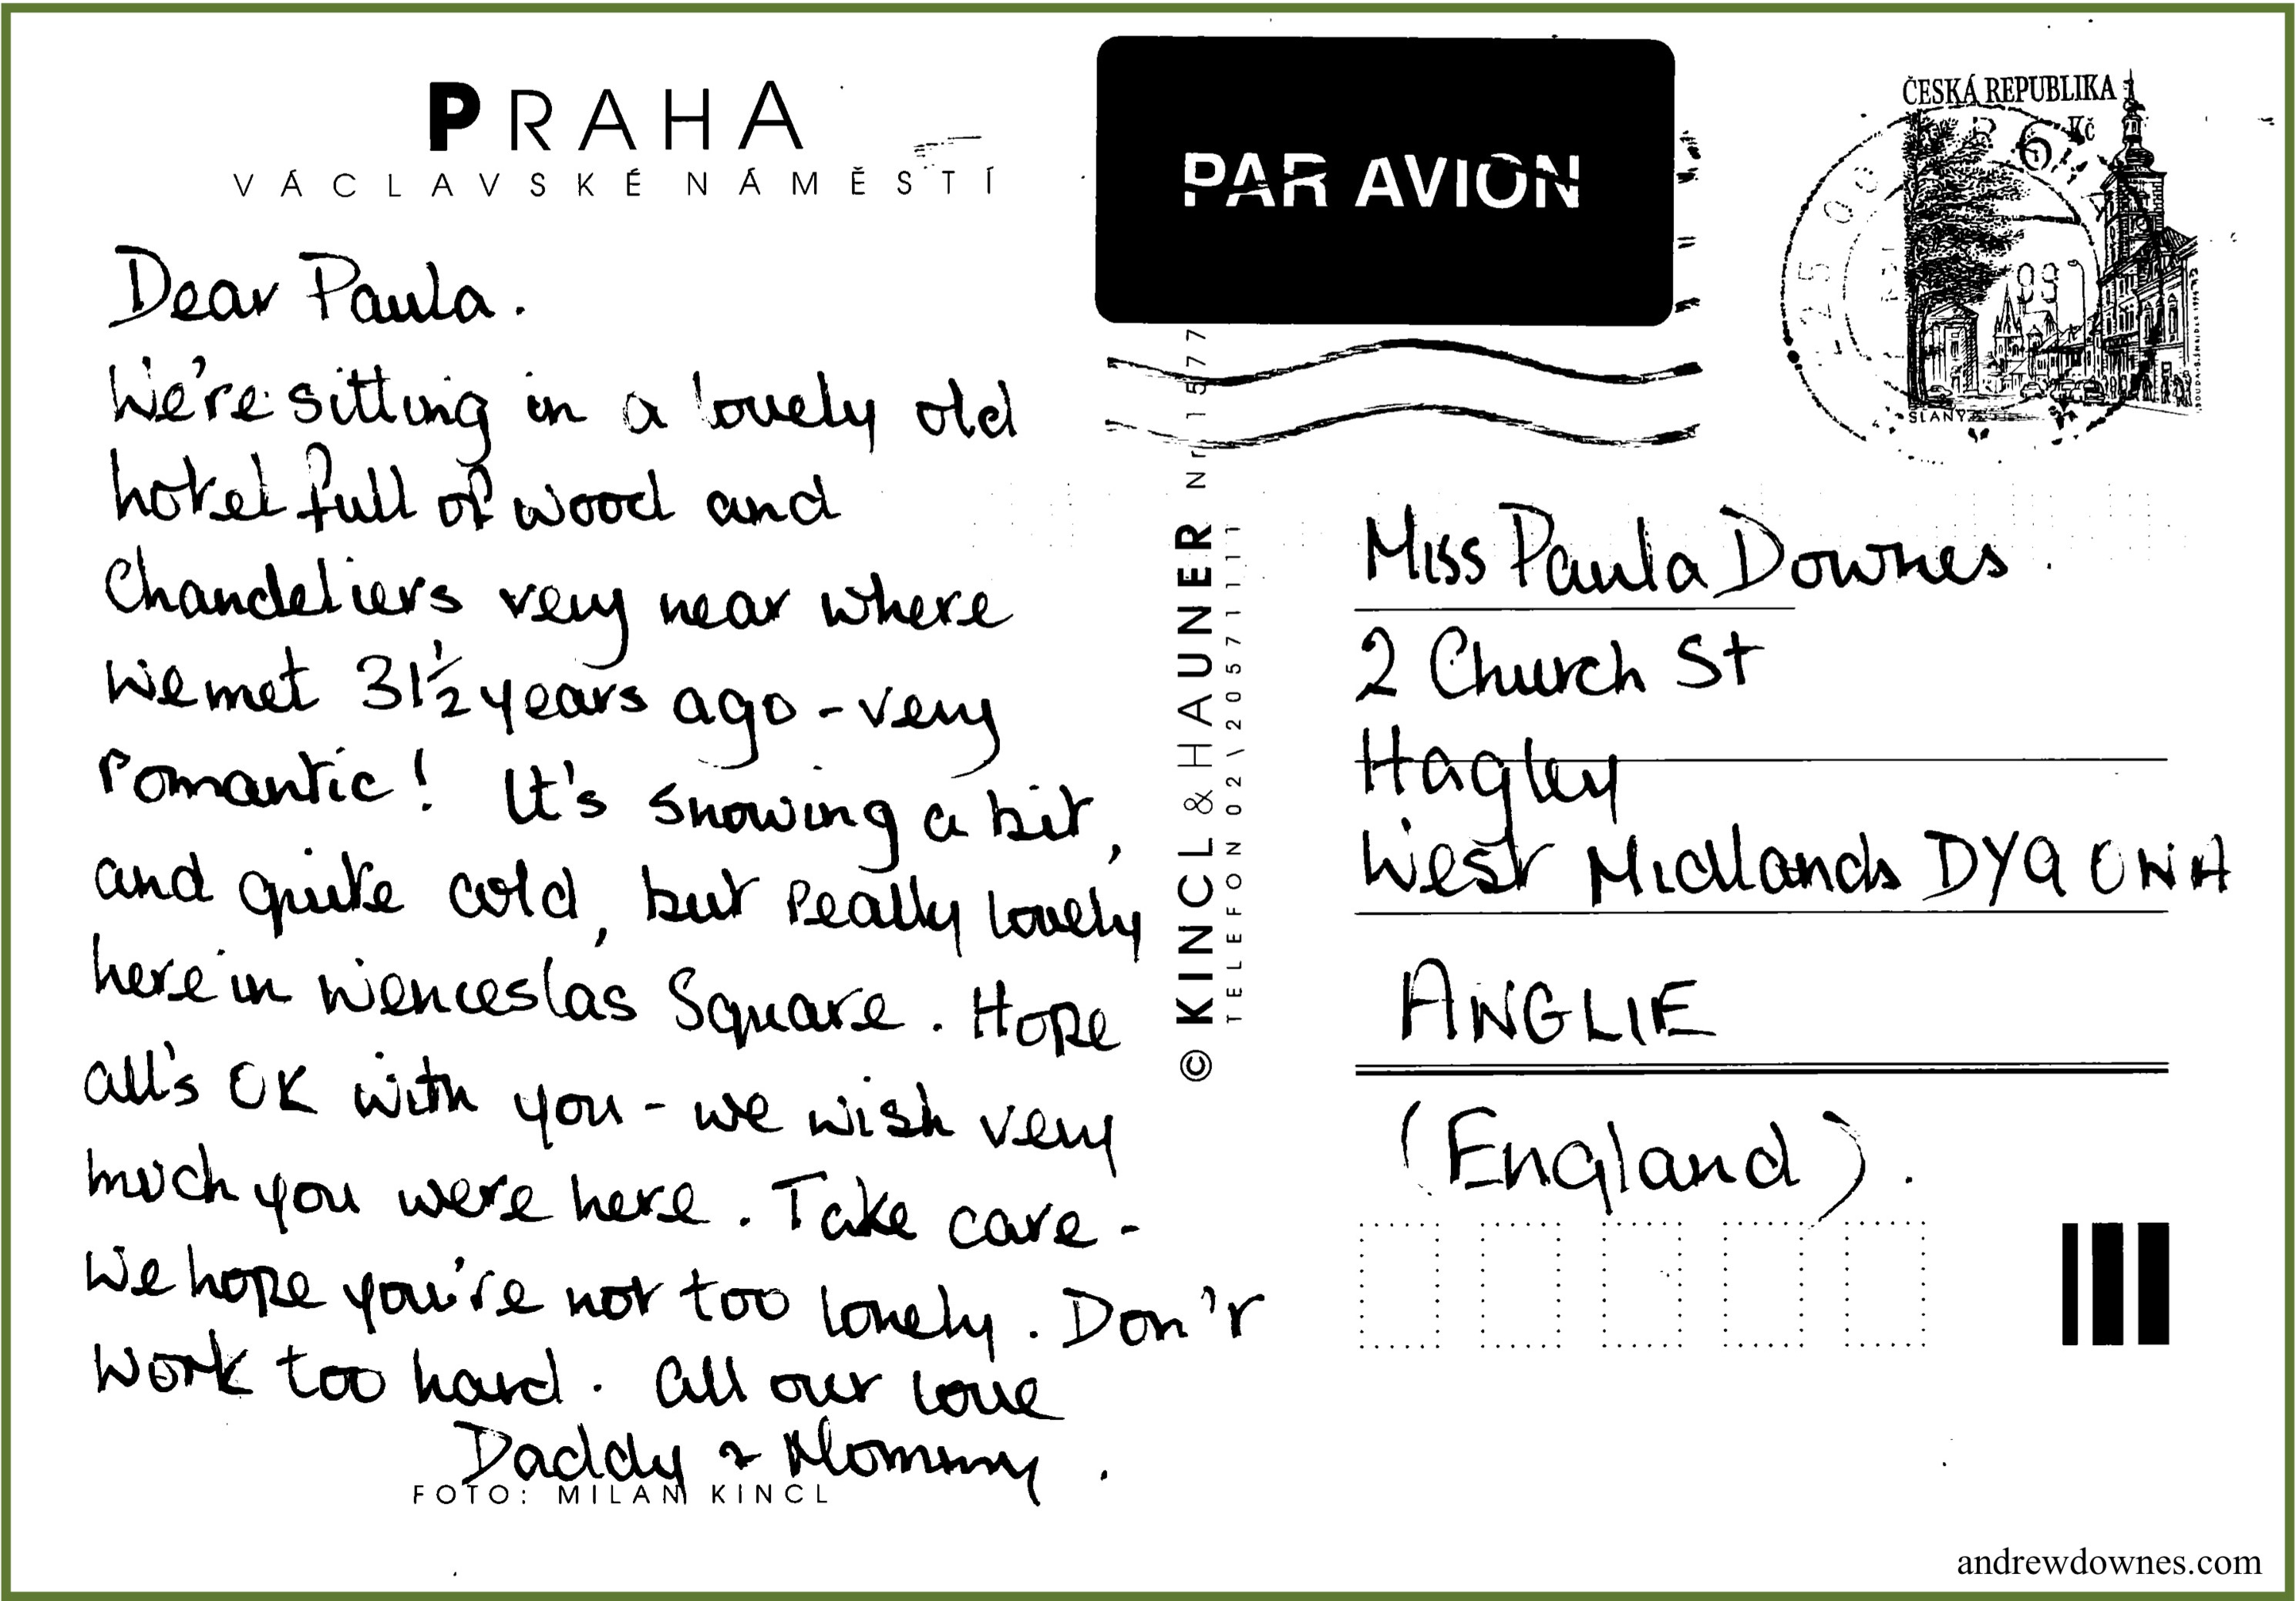 PRAHA
VÁCLAVSKÉ NÁMĚSTÍ
Dear Paula.
We're sitting in a lovely old
hotel full of wood and
Chandeliers very near where
We met 31½ years ago - very
romantic! It's snowing a bit,
and quite cold, but really lovely
here in Wenceslas Square. Hope
all's OK with you - we wish very
much you were here. Take care -
We hope you're not too lonely. Don't
work too hard. All our love
Daddy & Mommy.
FOTO: MILAN KINCL
© KINCL & HAUNER Nr 1577
TELEFON 02\20571111
PAR AVION
ČESKÁ REPUBLIKA
6 Kč
SLANÝ
25
99
Miss Paula Downes.
2 Church St
Hagley
West Midlands DY9 0NA
ANGLIE
(England).
andrewdownes.com